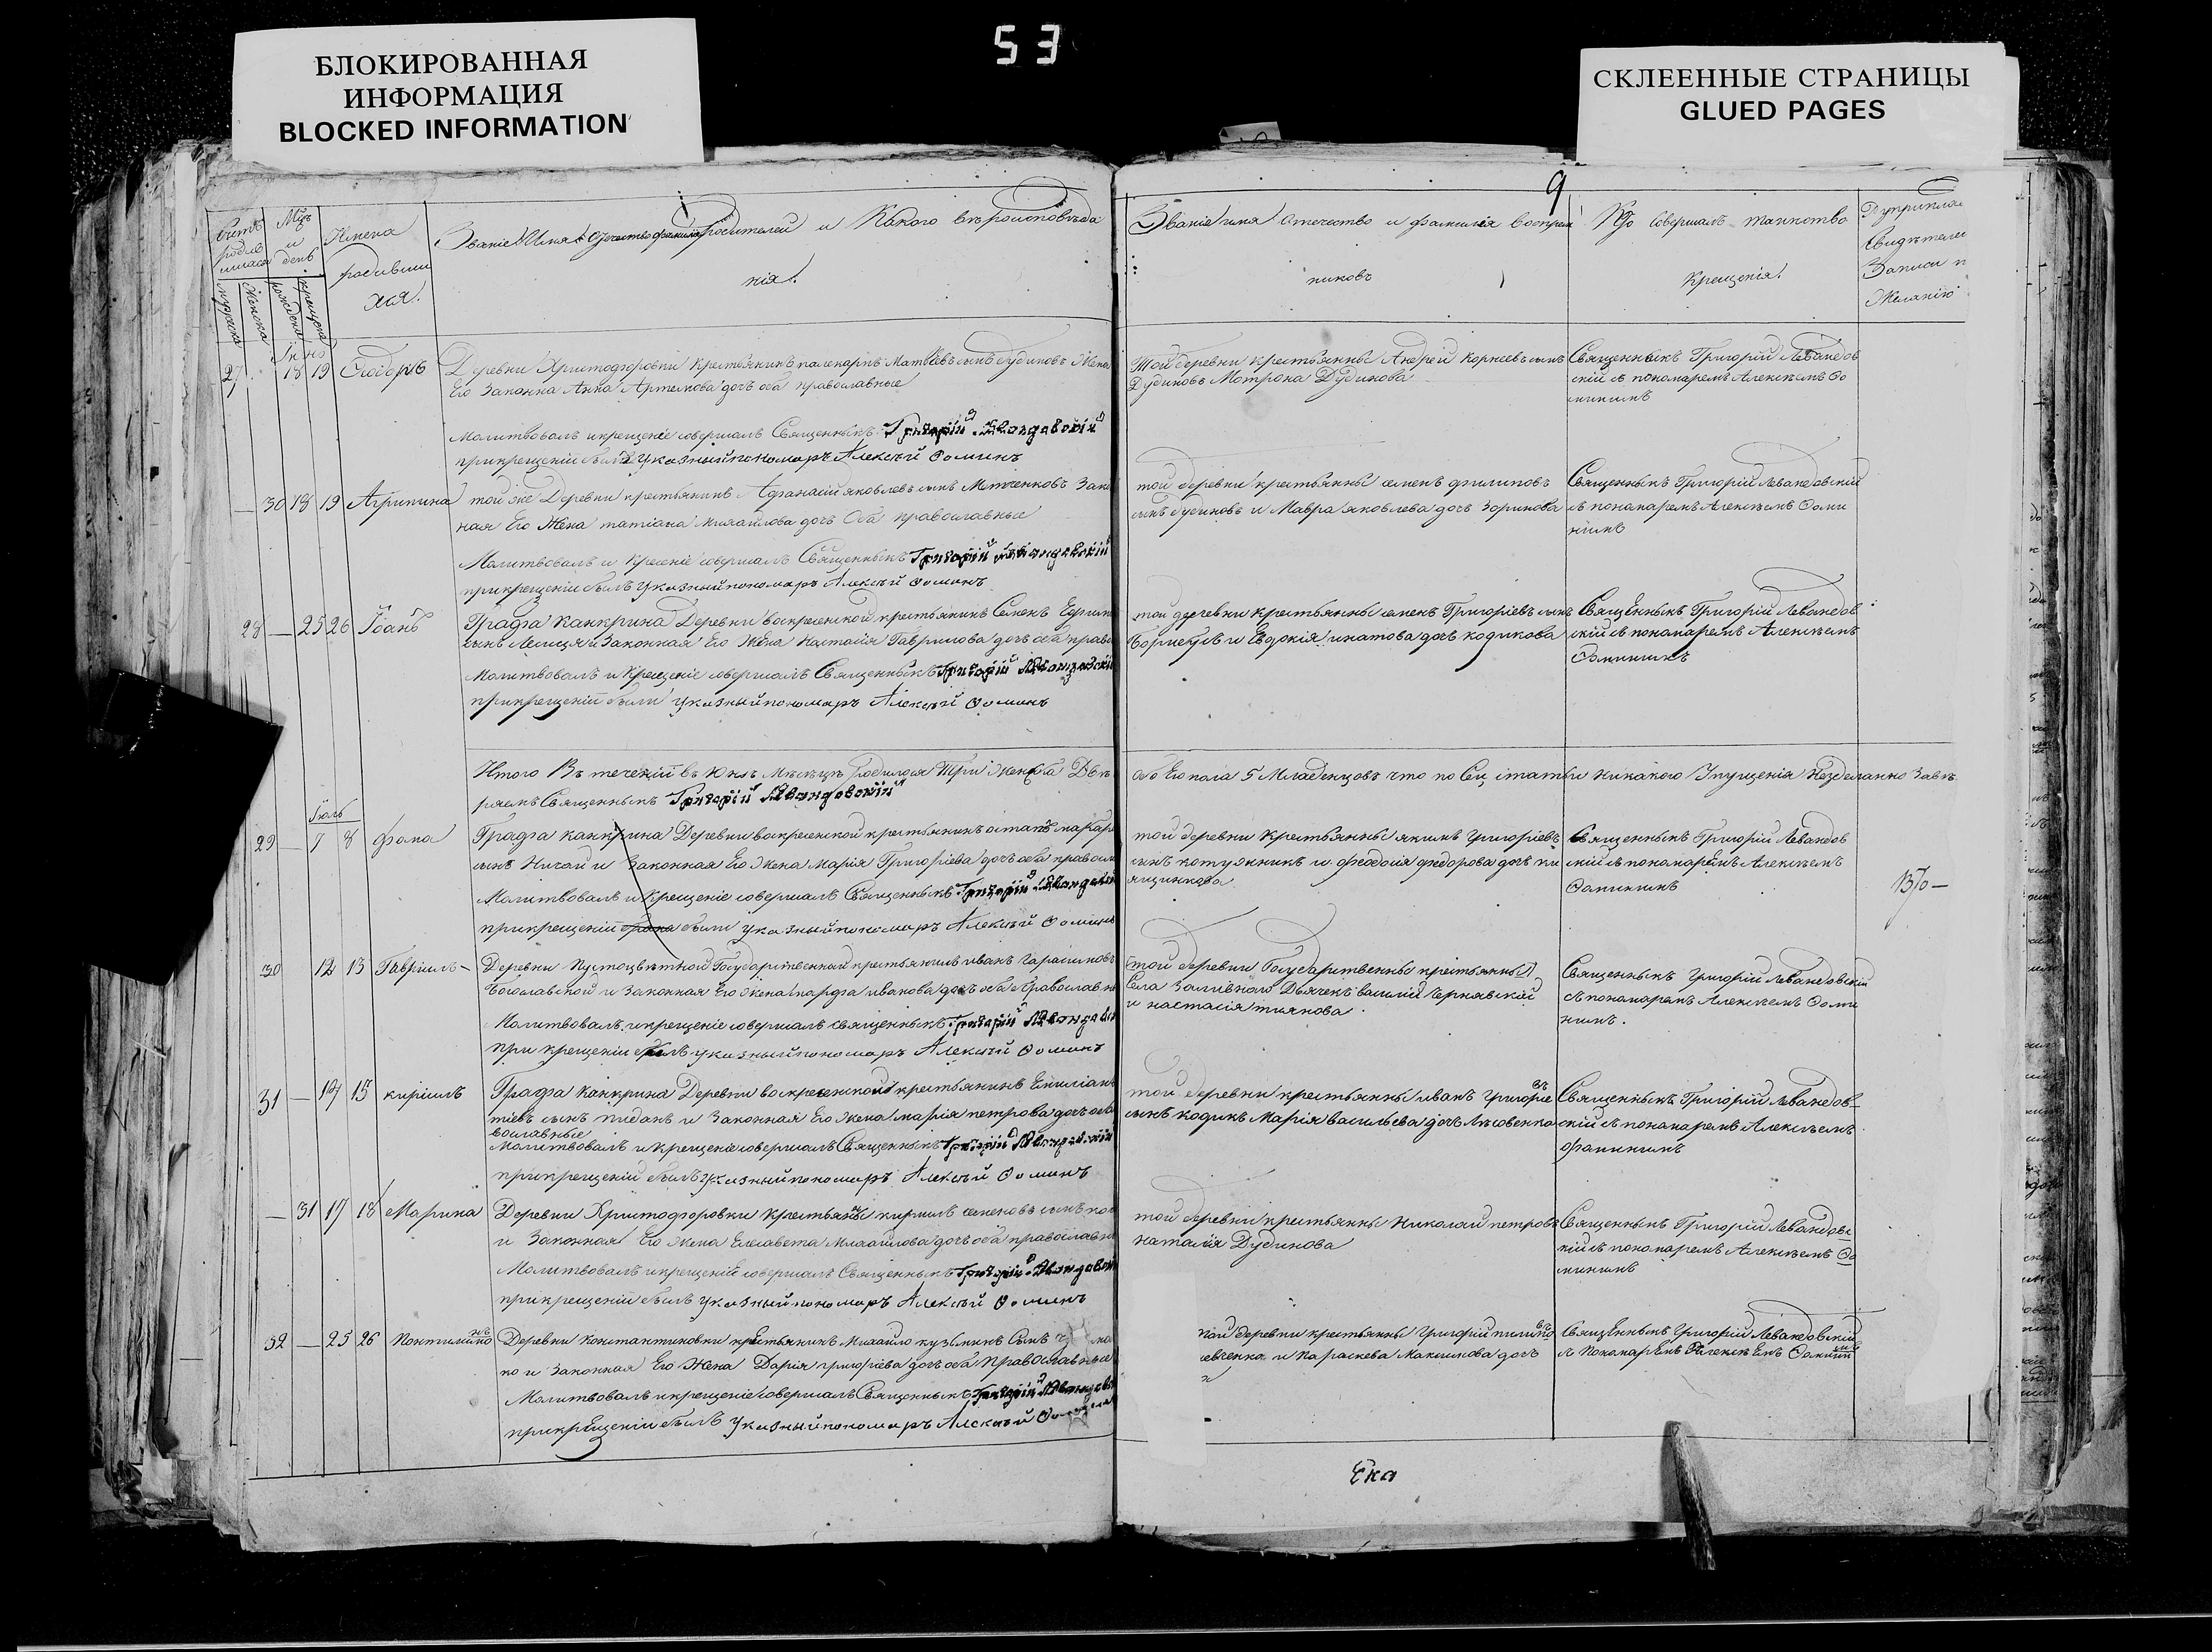 53
БЛОКИРОВАННАЯ
ИНФОРМАЦИЯ
BLOCKED INFORMATION
СКЛЕЕННЫЕ СТРАНИЦЫ
GLUED PAGES
9
Счетъ родив
Мць и день
Имена родивши
хся.
Званiе Имя Отчество фамилiя родителей и Какого вѣроисповѣда
нiя.
Званiе имя отчество и фамилiя воспрiем
никовъ
Кто совершалъ таинство
Крещенiя.
Рукоприкла
Свидѣтелей
Записи п
Желанiю
27 18 19 Ѳеодоръ Деревни Христофоровки крестьянинъ Матвѣевъ сынъ Дудиновъ Жена
Его Законна Анна Артемова дочь оба православные
Молитвовалъ и крещенiе совершалъ Священникъ Григорiй Левандовскiй
при крещенiи былъ Указный пономарь Алексѣй Ѳоминъ
Той деревни крестьянны Андрей Корнеевъ сынъ
Дудиновъ Мотрона Дудинова
Священникъ Григорiй Левандов
скiй съ пономаремъ Алексѣемъ Ѳо
минымъ
30 18 19 Агрипина той же Деревни крестьянинъ Афанасiй яковлевъ сынъ Метченковъ Зако
ная Его Жена татiана Михайлова дочь Оба православные
Молитвовалъ и Крещенiе совершалъ Священникъ Григорiй Левандовскiй
при крещенiи былъ Указный пономарь Алексѣй Ѳоминъ
той деревни крестьянны семенъ филиповъ
сынъ Дудиновъ и Мавра яковлева дочь Зоринова
Священникъ Григорiй Левандовскiй
съ пономаремъ Алексѣемъ Ѳоми
нымъ
28 — 25 26 Iоанъ Графа Канкрина Деревни воскресенской крестьянинъ Семенъ Ефрем
сынъ и Законная Его Жена Настасiя Гаврилова дочь оба право
Молитвовалъ и Крещенiе совершалъ Священникъ Григорiй Левандовскiй
при крещенiи были Указный пономарь Алексѣй Ѳоминъ
той деревни крестьянны семенъ Григорiевъ сынъ
и Евдокiя игнатова дочь кодикова
Священникъ Григорiй Левандов
скiй съ пономаремъ Алексѣемъ
Ѳоминымъ
Итого Въ теченiи въ Юнѣ Мѣсяцѣ родилося Три Женска Два
обоего пола 5 Младенцовъ что по Сей статьи никакого Упущенiя не зделанно Завѣ
ряемъ Священникъ Григорiй Левандовскiй
Iюль
29 — 7 8 фома Графа канкрина Деревни воскресенской крестьянинъ остапъ макаро
сынъ Ничай и Законная Его Жена Марiя Григорiева дочь оба правосл
Молитвовалъ и Крещенiе совершалъ Священникъ Григорiй Левандовскiй
при крещенiи были указный пономарь Алексѣй Ѳоминъ
той деревни Крестьянны якимъ Григорiевъ
сынъ котужникъ и феодосiя федорова дочь пи
ящинкова
Священникъ Григорiй Левандов
скiй съ пономаремъ Алексѣемъ
Ѳоминымъ
30 12 13 Гаврiилъ Деревни Пустоцвѣтной Государственный крестьянинъ иванъ Гарасимовъ
Богославской и Законная Его Жена марфа иванова дочь оба Православн
Молитвовалъ и крещенiе совершалъ священникъ Григорiй Левандовск
при крещенiи былъ указный пономарь Алексѣй Ѳоминъ
той деревни Государственны крестьянны
Села Заливного Дьячекъ василiй Чернявской
и настасiя тиянова
Священникъ Григорiй Левандовскiй
съ пономаремъ Алексѣемъ Ѳоми
нымъ.
31 — 14 15 кирiилъ Графа Канкрина Деревни воскресенской крестьянинъ Емилiанъ
тiевъ сынъ пиданъ и Законная Его Жена марiя петрова дочь оба
вославные
Молитвовалъ и крещенiе совершалъ Священникъ Григорiй Левандовскiй
при крещенiи былъ указный пономарь Алексѣй Ѳоминъ
той деревни крестьянны иванъ Григорiевъ
сынъ кодикъ Марiя васильева дочь
Священникъ Григорiй Левандов
скiй съ пономаремъ Алексѣемъ
фоминымъ
— 31 17 18 Марина Деревни Христофоровки крестьянинъ кирилъ семеновъ сынъ
и Законная Его Жена Елисавета Михайлова дочь оба православн
Молитвовалъ и крещенiе совершалъ Священникъ Григорiй Левандовск
при крещенiи былъ указный пономарь Алексѣй Ѳоминъ
той деревни крестьянны Николай петровъ
наталiя Дудинова
Священникъ Григорiй Левандовс
кiй съ пономаремъ Алексѣемъ Ѳо
минымъ
32 — 25 26 Деревни Константиновки крестьянинъ Михайло кузьминъ Сынъ
ко и Законная Его Жена Дарiя григорiева дочь оба Православные
Молитвовалъ и крещенiе совершалъ Священникъ Григорiй Левандовс
при крещенiи былъ Указный пономарь Алексѣй Ѳоминъ
деревни крестьянны Григорiй
евченко и Параскева Максимова дочь
Священникъ Григорiй Левандовскiй
съ Пономаремъ Алексѣемъ Ѳоминымъ
Ека